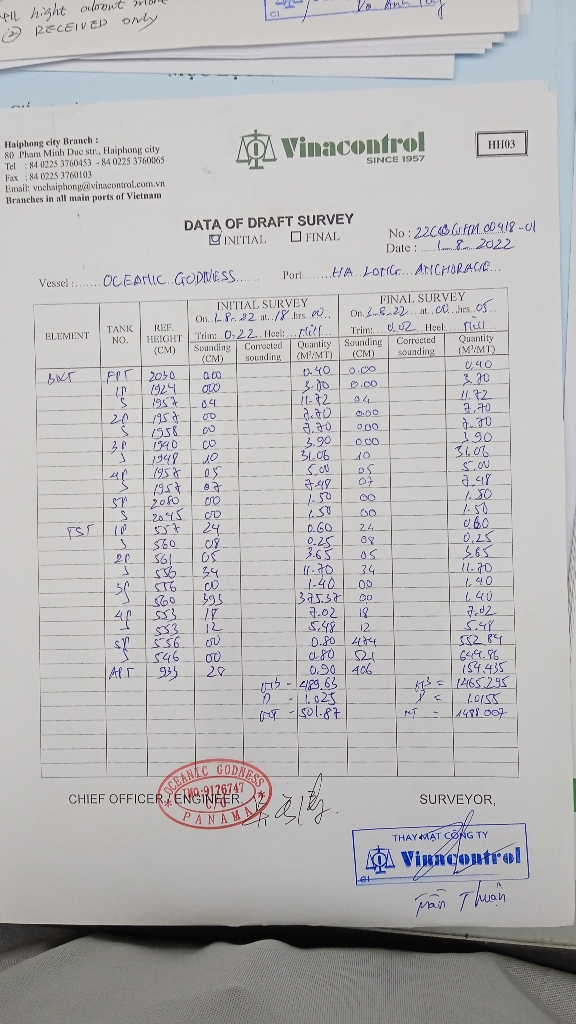 ② RECEIVED only
Haiphong city Branch :
80 Pham Minh Duc str., Haiphong city
Tel : 84 0225 3760453 - 84 0225 3760065
Fax : 84 0225 3760103
Email: vnchaiphong@vinacontrol.com.vn
Branches in all main ports of Vietnam
Vinacontrol
SINCE 1957
HH03
DATA OF DRAFT SURVEY
INITIAL FINAL
No :
Date : 1.8.2022
Vessel : OCEANIC GODNESS Port HA LONG ANCHORAGE
ELEMENT TANK NO. REF. HEIGHT (CM) INITIAL SURVEY FINAL SURVEY
On. 1-8-22 at 18 hrs. 00 On. 3-8-22 at 00 hrs. 05
Trim: 0.22 Heel: Mill Trim: 0.02 Heel: Mill
Sounding (CM) Corrected sounding Quantity (M³/MT) Sounding (CM) Corrected sounding Quantity (M³/MT)
FPT 2030 0.00 0.40 0.00 0.40
1P 1924 3.70 0.00
S 1957 04 11.72 04 11.72
2P 1957 00 7.70 0.00 7.70
S 1958 00 7.70 000
3P 1940 00 3.90 0.00 3.90
S 1948 10 31.06 10 31.06
4P 1957 05 5.00 05 5.00
S 1957 07 7.48 07 7.48
5P 2080 00 1.50 00
S 2045 00 1.50 00 1.50
FST 1P 557 24 0.60 24 0.60
S 560 08 0.25 08 0.25
2P 561 05 3.65 05 3.65
S 556 34 11.70 34 11.70
3P 556 00 1.40 00 1.40
S 560 393 375.37 00 1.40
4P 553 18 7.02 18 7.02
S 553 12 5.48 12 5.48
5P 556 00 0.80 474 552.84
S 546 00 0.80 521 644.86
APT 933 28 0.90 406 154.435
M³ - 489.63 M³ = 1465.295
- 1.025 = 1.0155
MT - 501.87 MT = 1488.007
CHIEF OFFICER / ENGINEER SURVEYOR,
OCEANIC GODNESS
IMO-9126747
C/O
PANAMA
THAY MẶT CÔNG TY
Vinacontrol
Trần Thuận